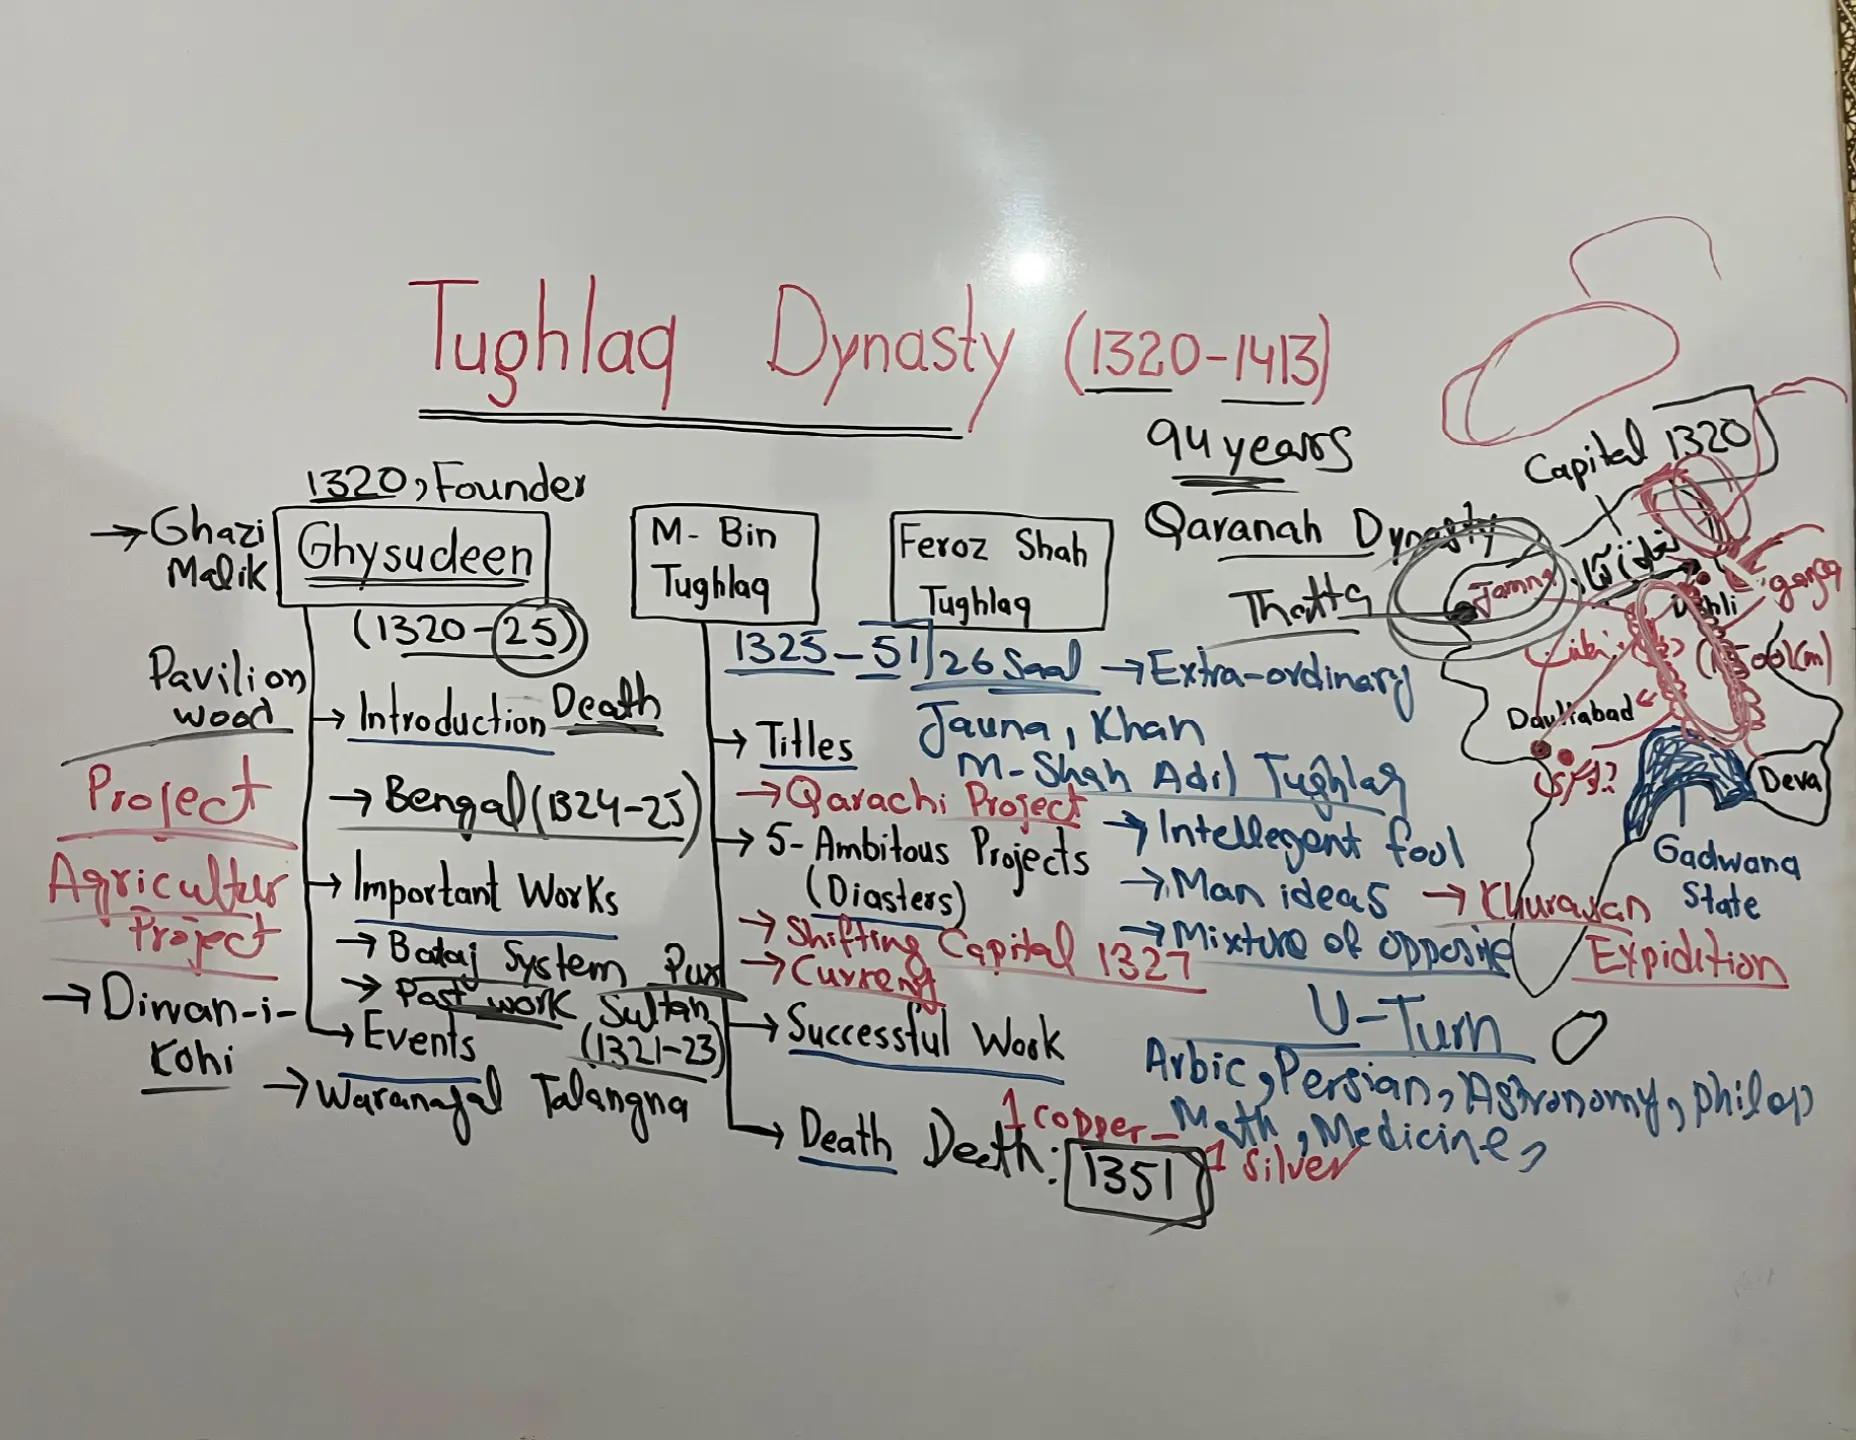 Tughlaq Dynasty (1320-1413)
94 years
Qaranah Dynasty
1320, Founder
→ Ghazi
Malik
Ghysudeen
(1320-25)
Pavilion
wood
→ Introduction Death
→ Bengal (1324-25)
Project
Agricultur
Project
→ Important Works
→ Bataj System
→ Past work
Sultan
(1321-23)
→ Diwan-i-
Kohi
→ Events
→ Waranagal Talangna
M- Bin
Tughlaq
1325-51/26 Saal
→ Titles
Jauna, Khan
M-Shah Adil Tughlaq
→ Qarachi Project
→ 5-Ambitous Projects
(Diasters)
→ Shifting Capital 1327
→ Curreny
→ Successful Work
→ Death Death: 1351
1 copper-
1 silver
Feroz Shah
Tughlaq
→ Extra-ordinary
→ Intellegent fool
→ Man ideas
→ Mixture of opposie
→ Khurasan
Expidition
U-Turn
Arbic, Persian, Astronomy, philop
Math, Medicine,
Capital 1320
Thatta
Jamna
ganga
Dehli
Daultabad
Deva
Gadwana
State